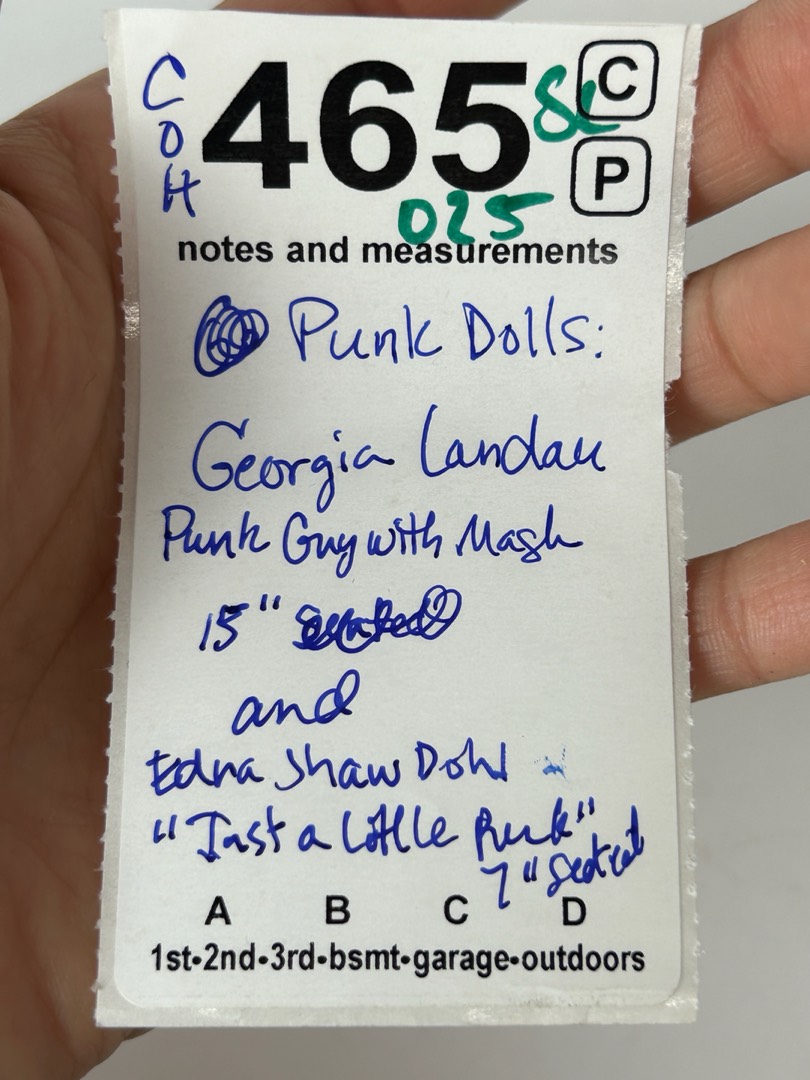 COH 465 SL C
P
025
notes and measurements
Punk Dolls:
Georgia Landau
Punk Guy with Mask
15"
and
Edna Shaw Dohl
"Just a Little Punk"
7" Seated
A B C D
1st•2nd•3rd•bsmt•garage•outdoors